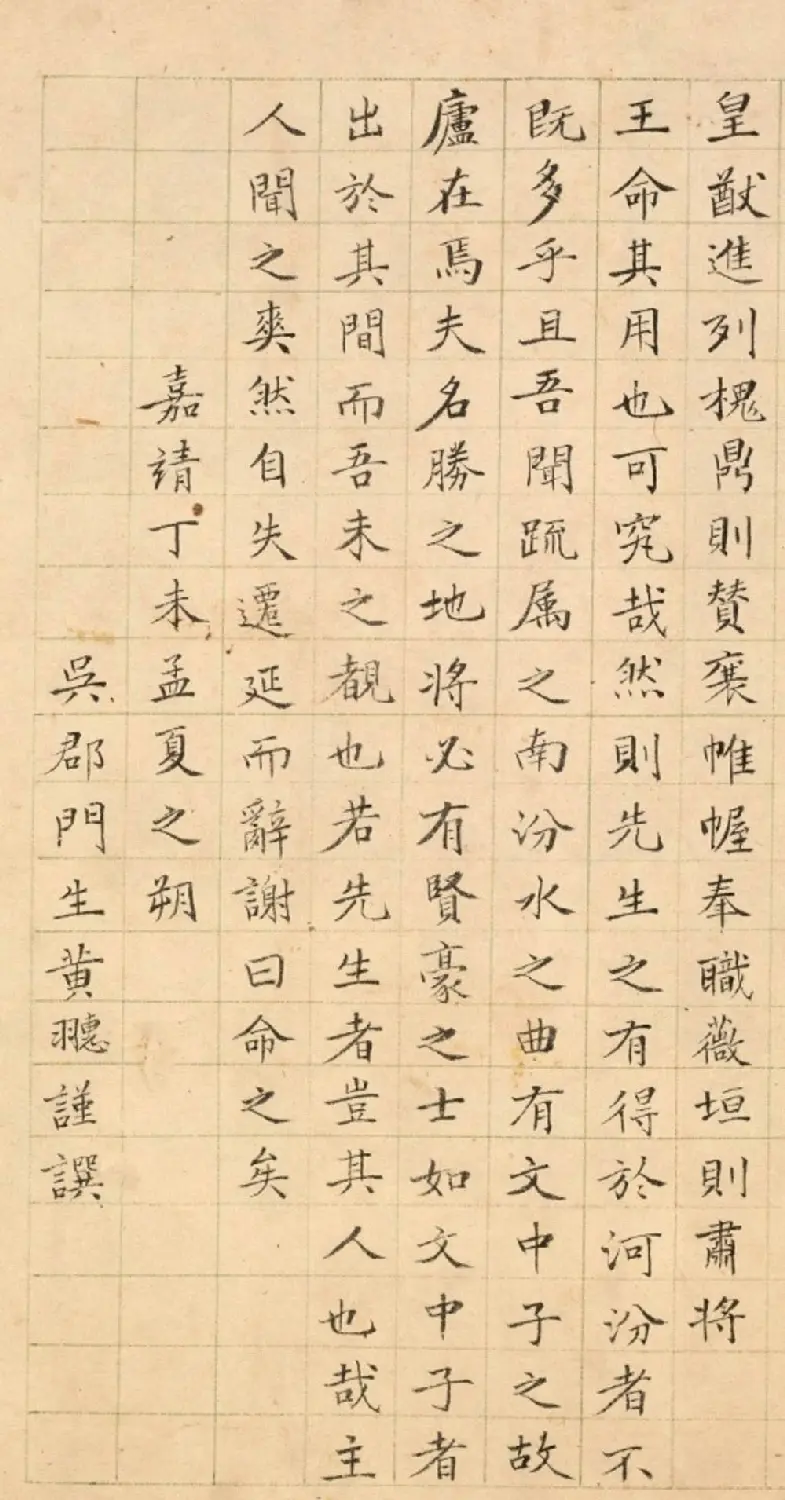 皇猷進列槐鼎則賛襄帷幄奉職薇垣則肅將
王命其用也可究哉然則先生之有得於河汾者不
既多乎且吾聞䟽属之南汾水之曲有文中子之故
廬在焉夫名勝之地將必有賢豪之士如文中子者
出於其間而吾未之覩也若先生者豈其人也哉主
人聞之爽然自失遷延而辭謝曰命之矣
嘉靖丁未孟夏之朔
吳郡門生黄謹譔